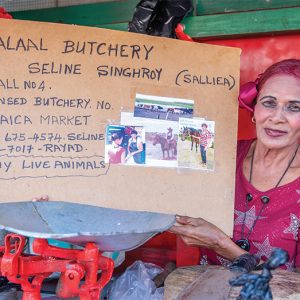 ALAAL BUTCHERY
SELINE SINGHROY (SALLIEA)
ALL No 4.
NSED BUTCHERY. NO.
AICA MARKET
675-4574. SELINE
-7017- RAYND.
Y LIVE ANIMALS